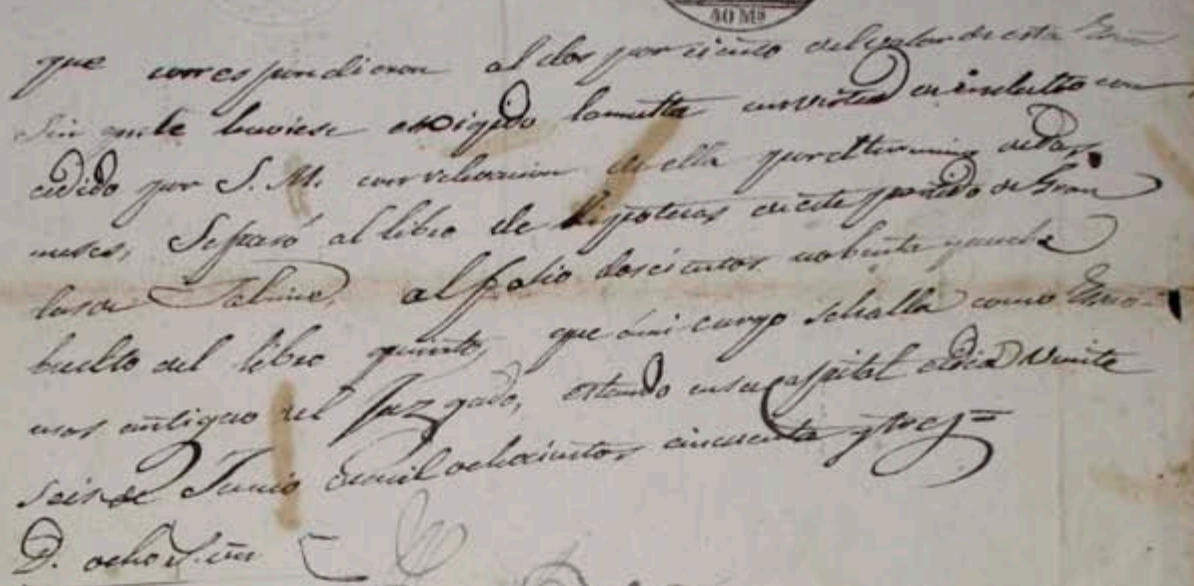 40 Ms
que correspondieron al dos por ciento del valor de esta
Sin que le huviese exsigido la multa en virtud de indulto con
cedido por S. M. con relevacion de ella por el termino de dos
meses, Se pasó al libro de hipotecas de este partido de Gran
las de Salime, al folio doscientos nobenta y ocho
buelto del libro quinto, que á mi cargo se halla como Escno
mas antiguo del Juzgado, estando en su capital el dia veinte
seis de Junio de mil ochocientos cincuenta y tres =
D. ocho